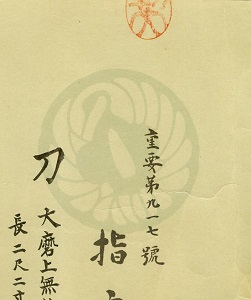 重要第九一七號
指
刀
大磨上無
長二尺二寸